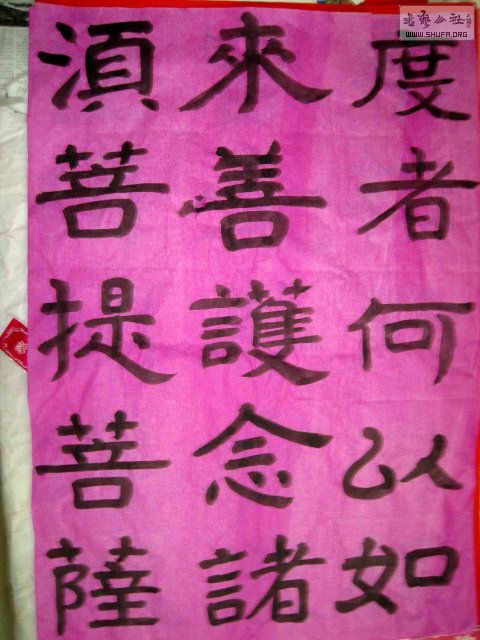 度者何以如
來善護念諸
湏菩提菩薩
WWW.SHUFA.ORG